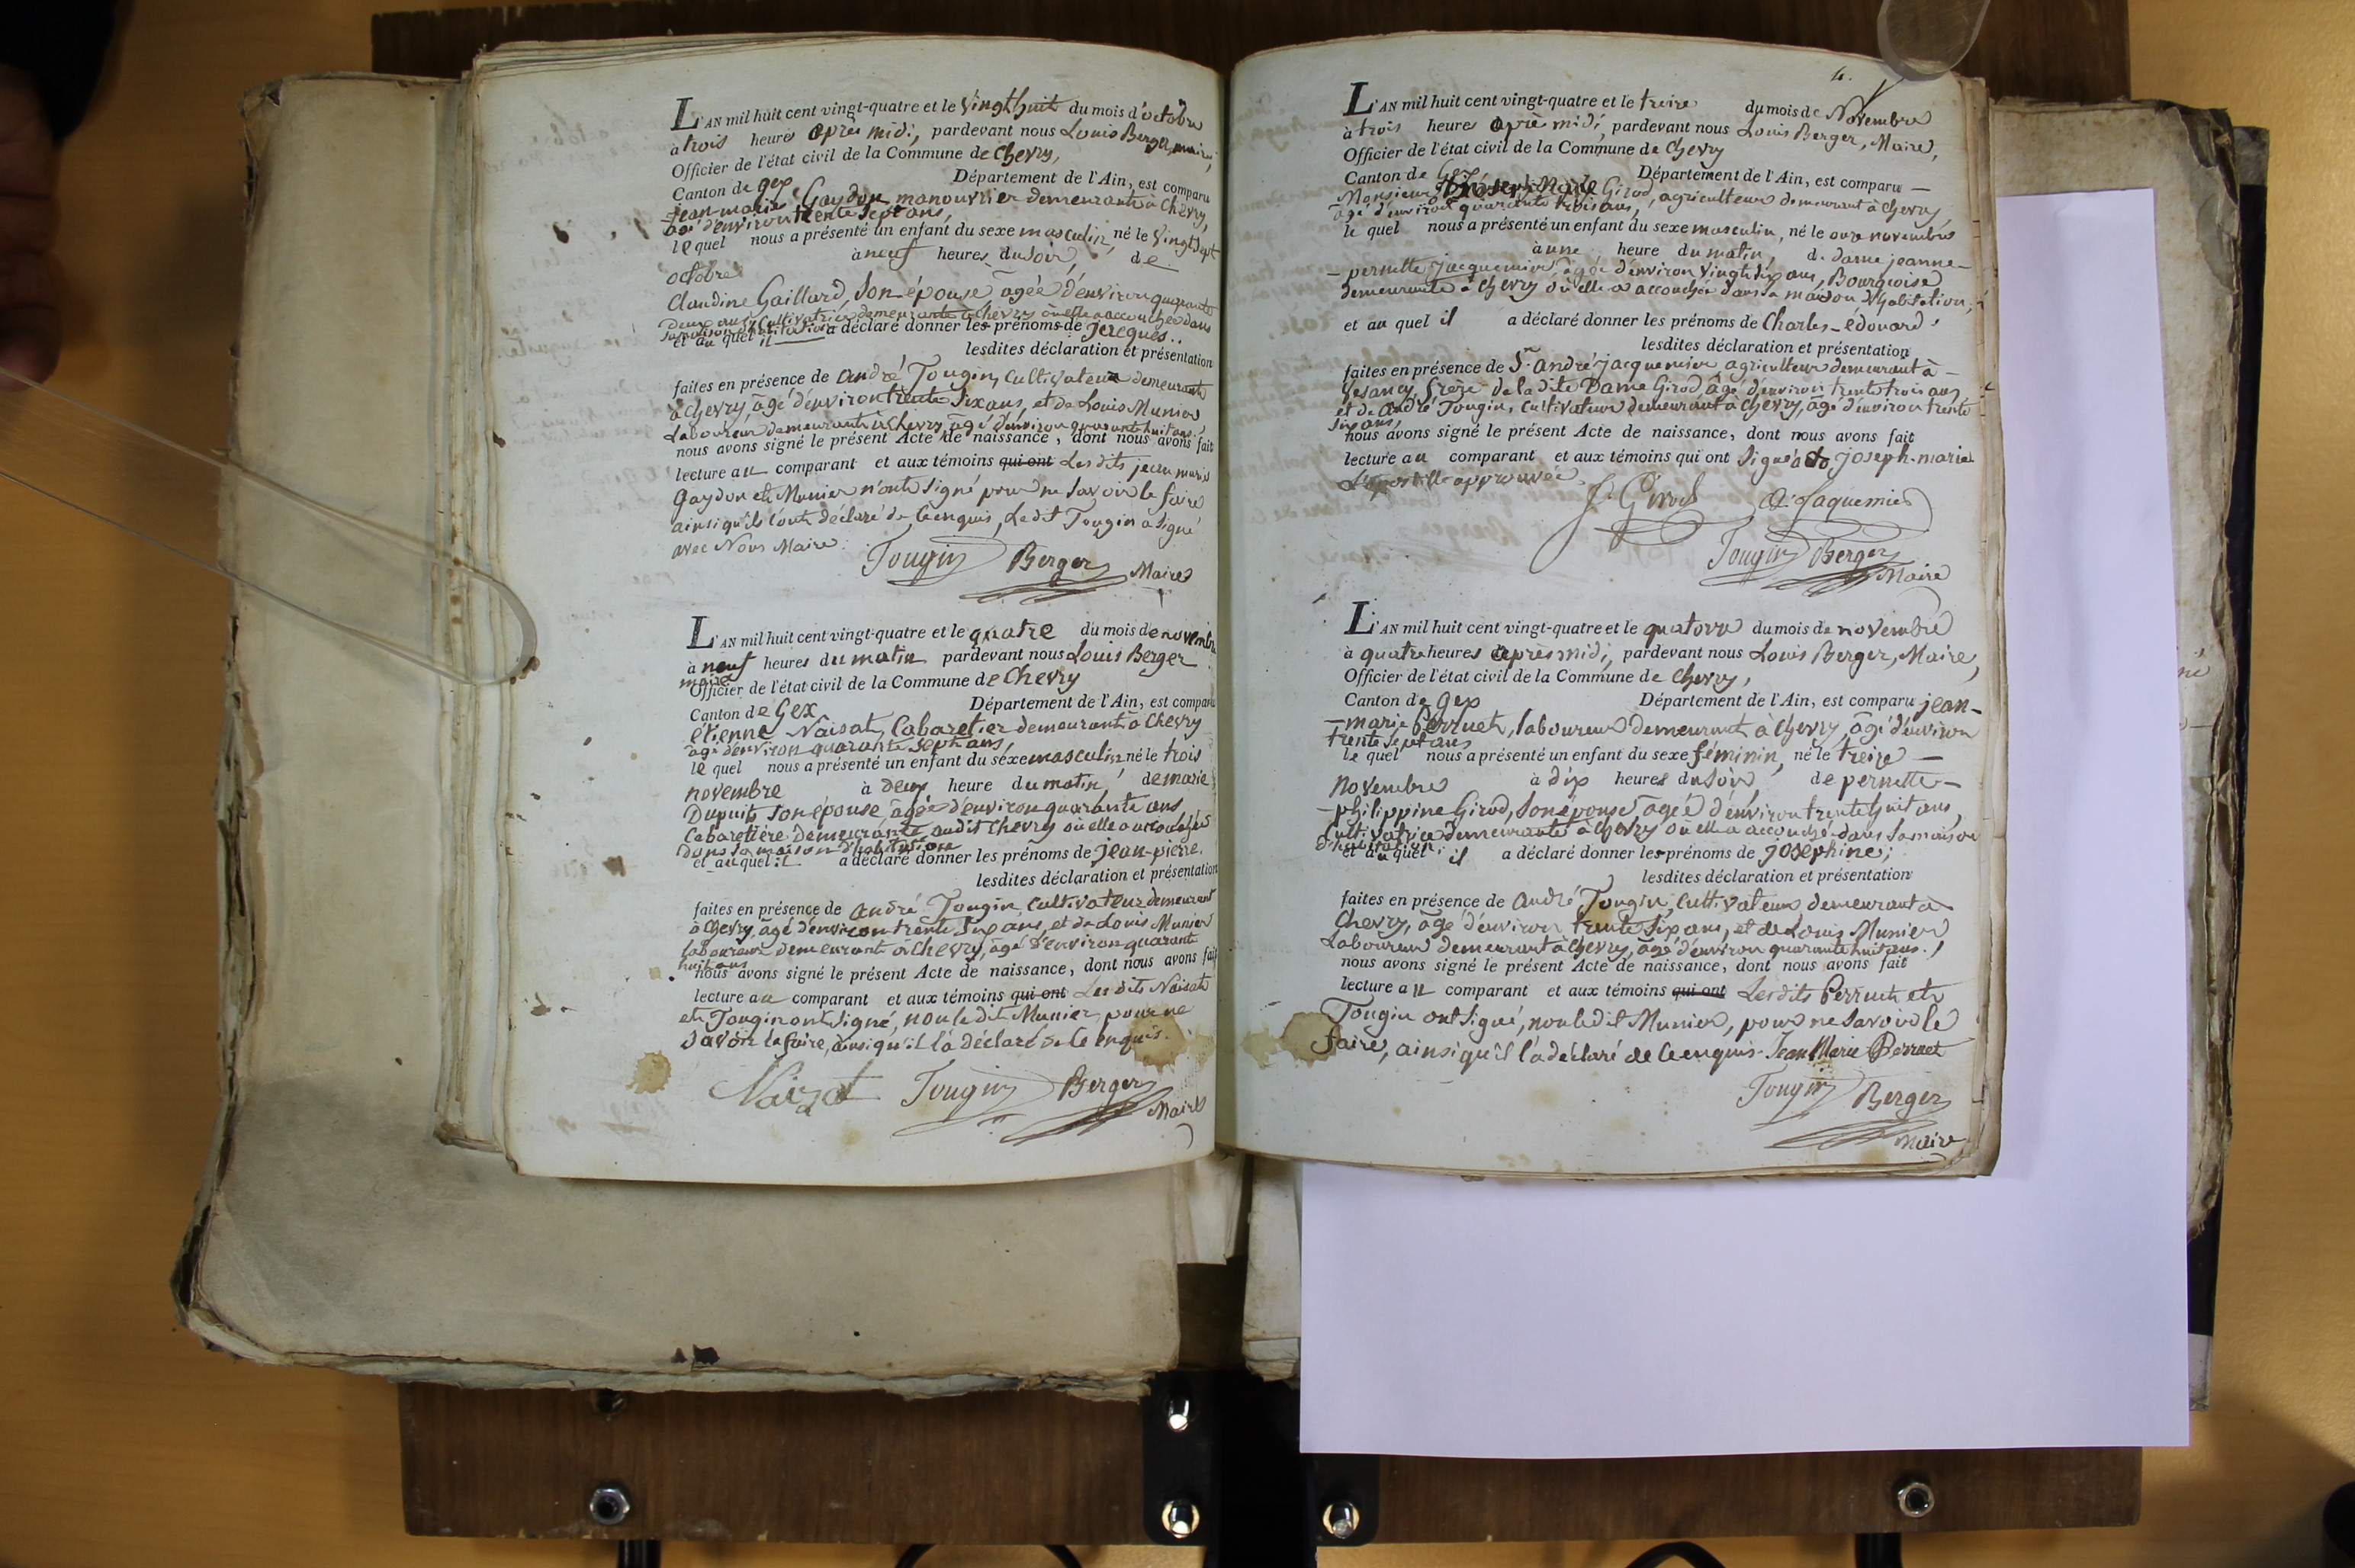 L'AN mil huit cent vingt-quatre et le vingt huit du mois d'octobre
à trois heures après midi, pardevant nous Louis Berger, maire,
Officier de l'état civil de la Commune de Chevry,
Canton de gex Département de l'Ain, est comparu
jean-marie Gaydon manouvrier demeurant à Chevry,
âgé d'environ trente sept ans,
le quel nous a présenté un enfant du sexe masculin, né le vingt sept
octobre à neuf heures du soir, de
Claudine Gaillard, son épouse âgée d'environ quarante
deux ans, Cultivatrice demeurante à Chevry où elle a accouchée dans
sa maison d'habitation
et au quel il a déclaré donner les prénoms de jacques..
lesdites déclaration et présentation
faites en présence de andré Tougin, Cultivateur demeurant
à Chevry, âgé d'environ trente six ans, et de Louis Munier
Laboureur demeurant à Chevry, âgé d'environ quarante huit ans,
nous avons signé le présent Acte de naissance, dont nous avons fait
lecture au comparant et aux témoins qui ont Lesdits jean marie
Gaydon et Munier n'ont signé pour ne savoir le faire
ainsi qu'ils l'ont déclaré de ce enquis, Ledit Tougin a signé
avec Nous Maire.
Tougin Berger Maire
L'AN mil huit cent vingt-quatre et le quatre du mois de novembre
à neuf heures du matin pardevant nous Louis Berger
maire
Officier de l'état civil de la Commune de Chevry
Canton de Gex Département de l'Ain, est comparu
étienne Naisat, Cabaretier demeurant à Chevry
âgé d'environ quarante sept ans,
le quel nous a présenté un enfant du sexe masculin né le trois
novembre à deux heure du matin, de marie
Dupuit son épouse, âgée d'environ quarante ans,
Cabaretière demeurante audit Chevry où elle a accouchée
dans sa maison d'habitation
et au quel il a déclaré donner les prénoms de jean-pierre.
lesdites déclaration et présentation
faites en présence de andré Tougin Cultivateur demeurant
à Chevry, âgé d'environ trente six ans, et de Louis Munier
laboureur demeurant à Chevry, âgé d'environ quarante
huit ans
nous avons signé le présent Acte de naissance, dont nous avons fait
lecture au comparant et aux témoins qui ont Lesdits Naisat
et Tougin ont signé, non ledit Munier, pour ne
savoir le faire, ainsi qu'il l'a déclaré de ce enquis.
Naizat Tougin Berger
Maire
4.
L'AN mil huit cent vingt-quatre et le treize du mois de Novembre
à trois heures après midi, pardevant nous Louis Berger, Maire,
Officier de l'état civil de la Commune de Chevry
Canton de Gex Département de l'Ain, est comparu
Monsieur Joseph Marie Girod, agriculteur demeurant à Chevry,
âgé d'environ quarante trois ans,
le quel nous a présenté un enfant du sexe masculin, né le onze novembre
à une heure du matin, de dame jeanne-
-pernette jacquemier âgée d'environ vingt six ans, Bourgeoise
demeurante à Chevry où elle a accouchée dans sa maison d'habitation,
et au quel il a déclaré donner les prénoms de Charles-édouard,
lesdites déclaration et présentation
faites en présence de Sr. andré jacquemier agriculteur demeurant à
Vesancy, frère de la dite Dame Girod, âgé d'environ trente trois ans
et de andré Tougin, Cultivateur demeurant à Chevry, âgé d'environ trente
six ans,
nous avons signé le présent Acte de naissance, dont nous avons fait
lecture au comparant et aux témoins qui ont signé joseph-marie
L'apostille approuvée.
J. Girod A. Jaquemier
Tougin Berger
Maire
L'AN mil huit cent vingt-quatre et le quatorze du mois de novembre
à quatre heures après midi, pardevant nous Louis Berger, Maire,
Officier de l'état civil de la Commune de Chevry,
Canton de gex Département de l'Ain, est comparu jean-
-marie Perruet, laboureur demeurant à Chevry, âgé d'environ
trente sept ans
le quel nous a présenté un enfant du sexe féminin, né le treize
novembre à dix heures du soir, de pernette-
-philippine Girod, son épouse, âgée d'environ trente huit ans,
Cultivatrice demeurante à Chevry où elle a accouché dans sa maison
d'habitation;
et au quel il a déclaré donner les prénoms de joséphine;
lesdites déclaration et présentation
faites en présence de andré Tougin, Cultivateur demeurant à
Chevry, âgé d'environ trente six ans, et de Louis Munier
Laboureur demeurant à Chevry, âgé d'environ quarante huit ans.,
nous avons signé le présent Acte de naissance, dont nous avons fait
lecture au comparant et aux témoins qui ont Lesdits Perruet et
Tougin ont signé, non ledit Munier, pour ne savoir le
faire, ainsi qu'il l'a déclaré de ce enquis. Jean Marie Perruet
Tougin Berger
Maire